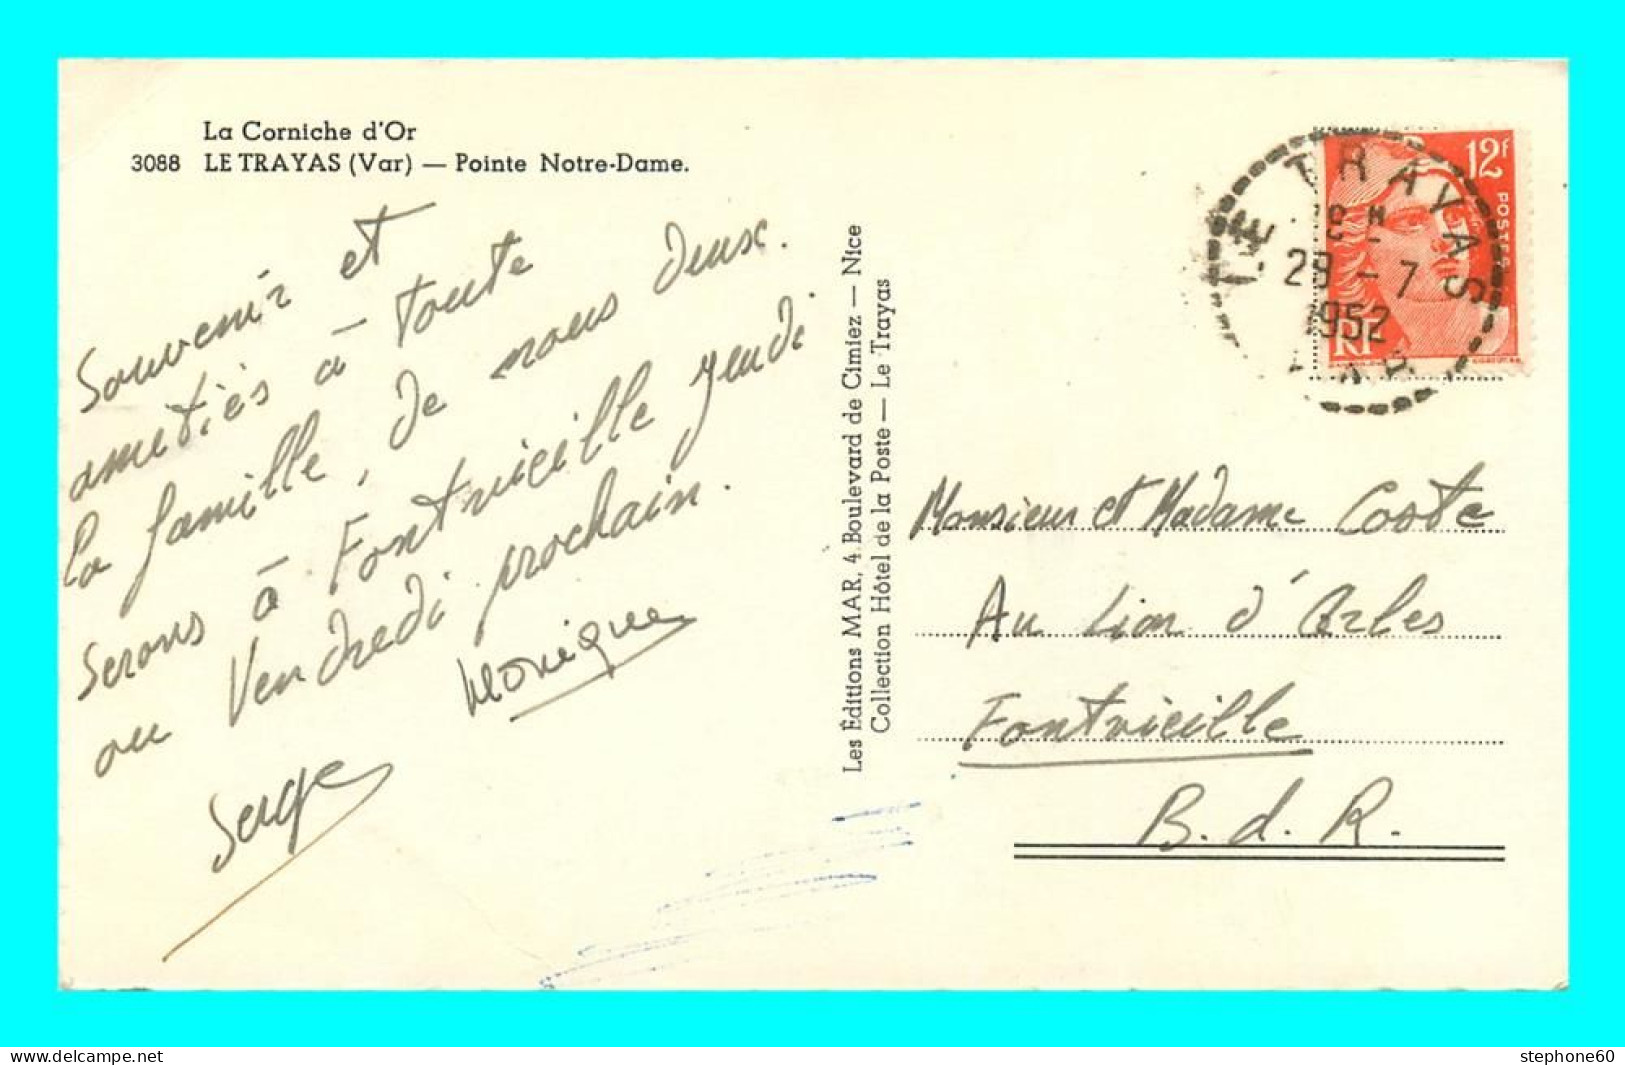 La Corniche d'Or
3088 LE TRAYAS (Var) — Pointe Notre-Dame.
Souvenir et
amitiés à toute
la famille, de nous deux.
Serons à Fontvieille jeudi
ou Vendredi prochain.
Monique
Serge
Les Éditions MAR, 4 Boulevard de Cimiez — Nice
Collection Hôtel de la Poste — Le Trayas
12f
POSTES
RF
LE TRAYAS
28 - 7
1952
VAR
Monsieur et Madame Coste
Au Lion d'Arles
Fontvieille
B.d.R.
www.delcampe.net
stephone60